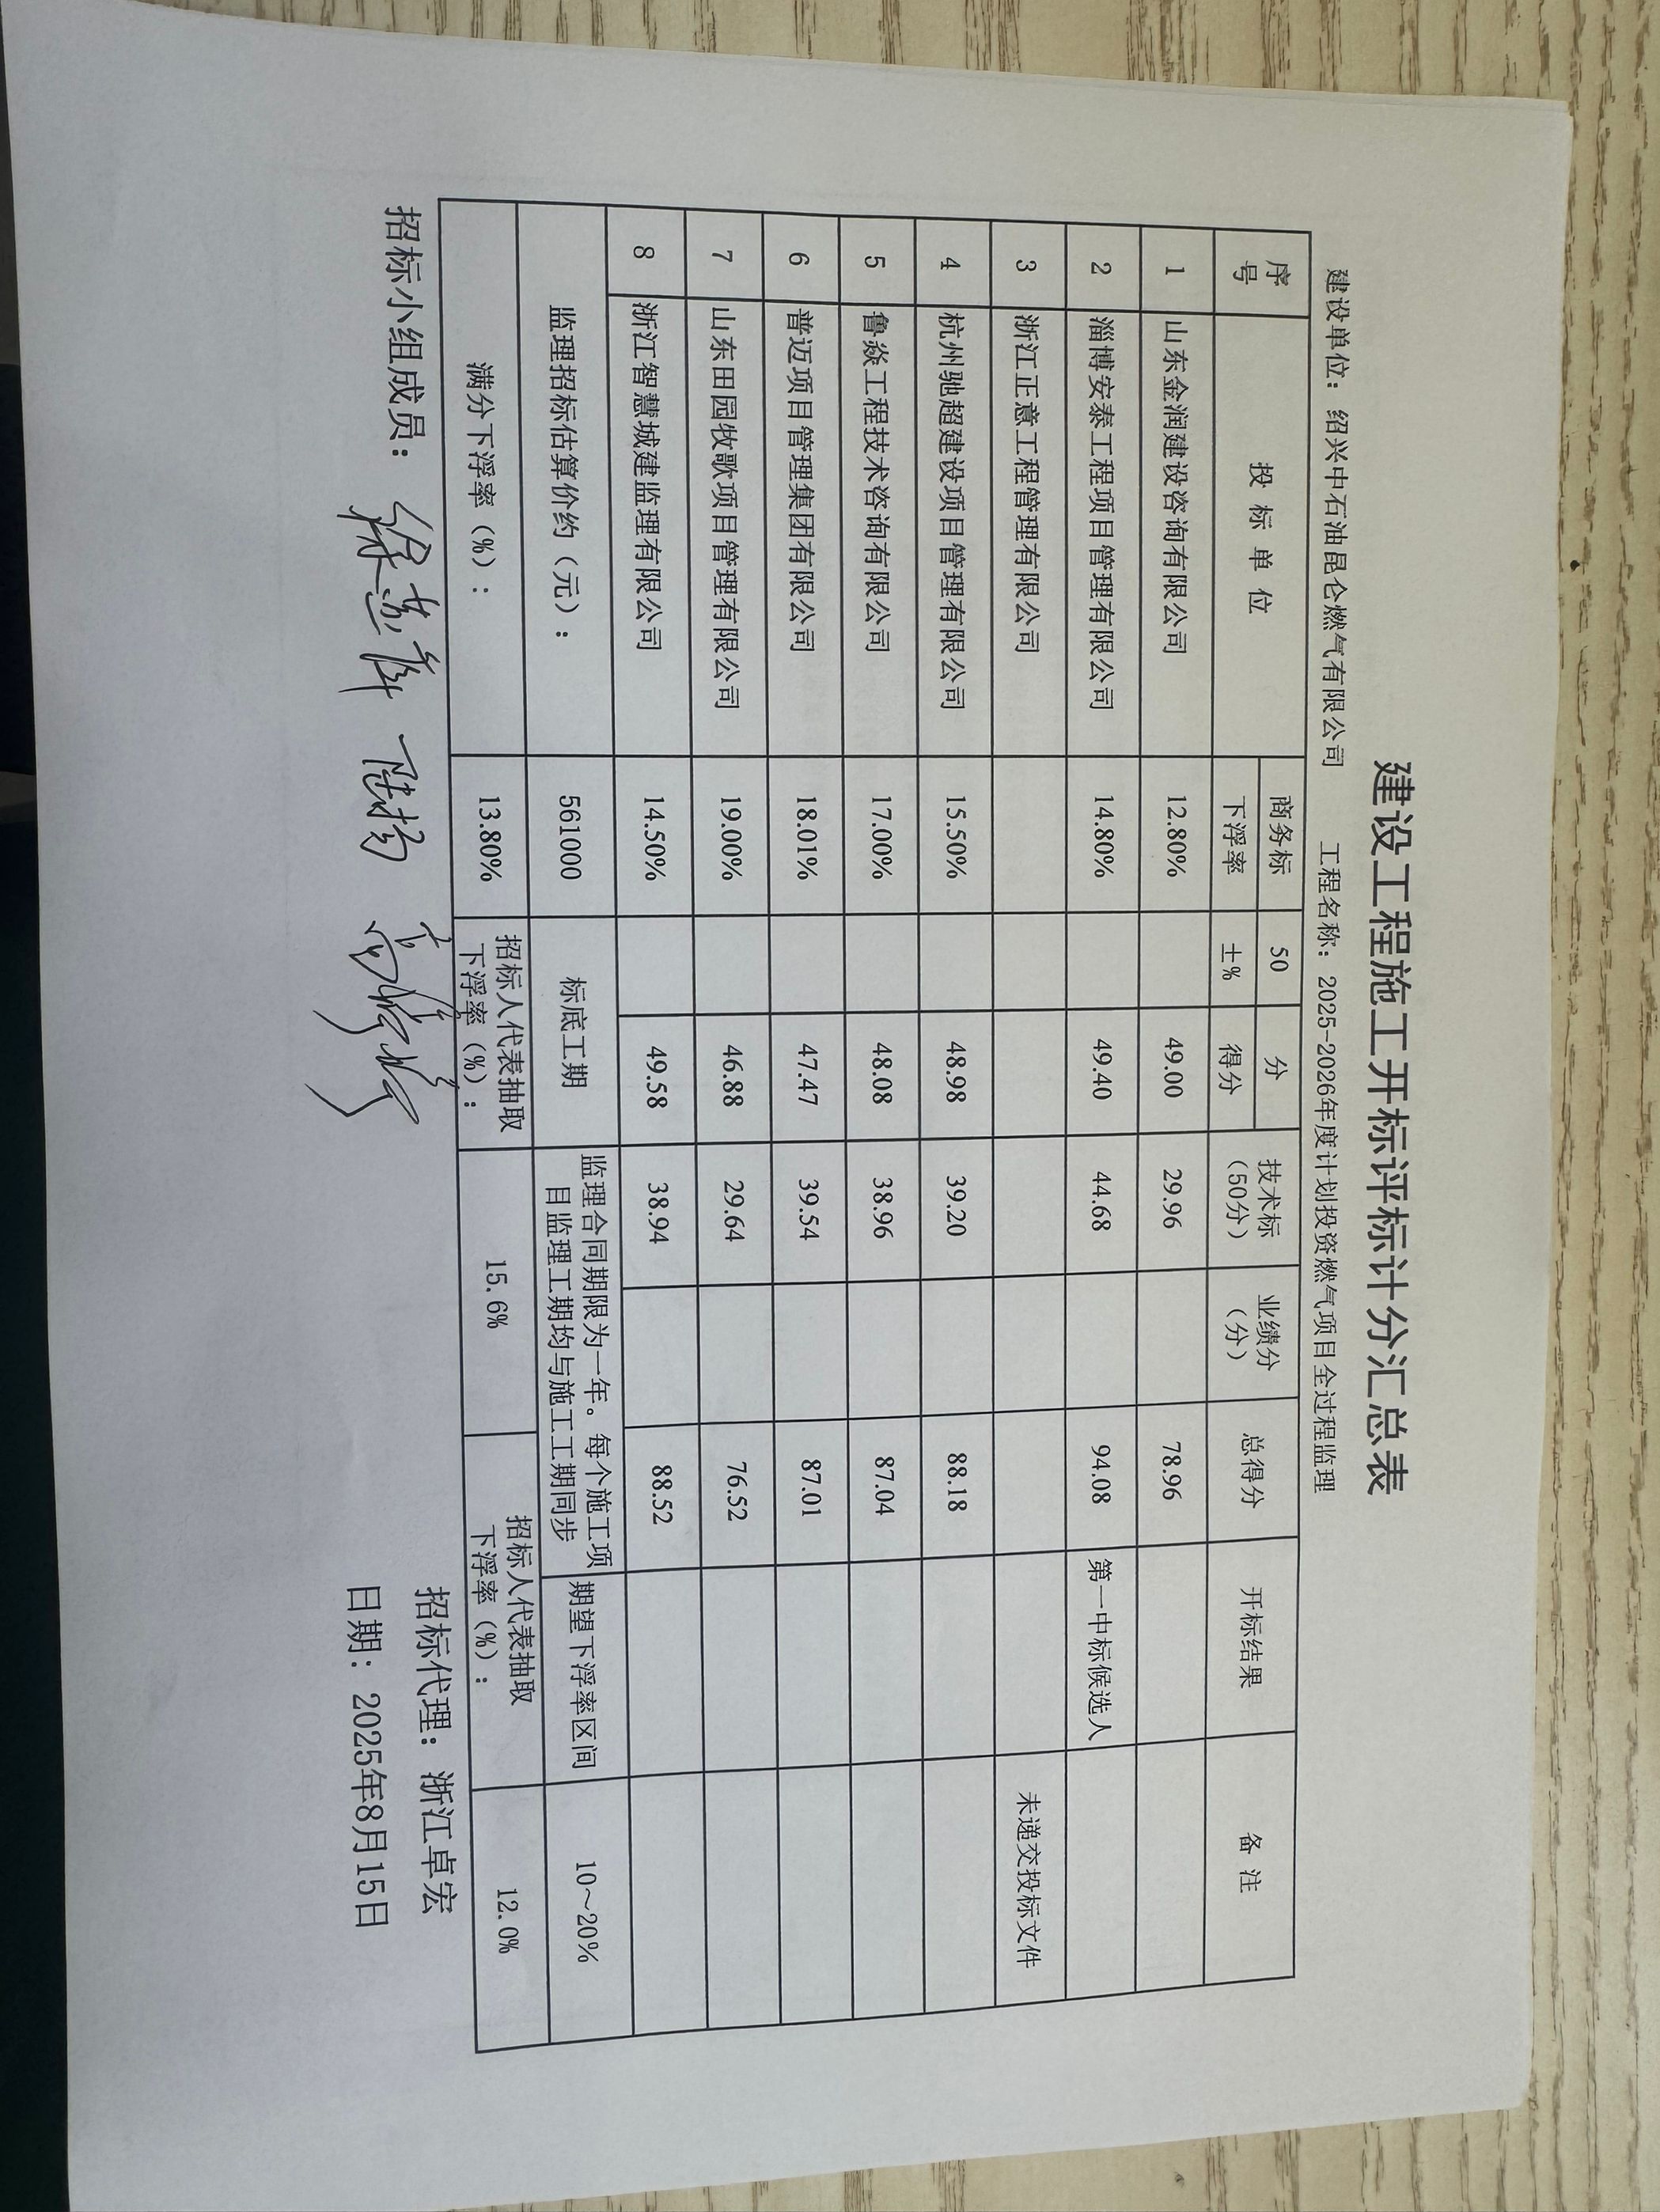 建设工程施工开标评标计分汇总表
建设单位：绍兴中石油昆仑燃气有限公司 工程名称：2025-2026年度计划投资燃气项目全过程监理
序号 投标单位 商务标 50 分 技术标（50分） 业绩分（分） 总得分 开标结果 备注
下浮率 ±% 得分
1 山东金润建设咨询有限公司 12.80% 49.00 29.96 78.96
2 淄博安泰工程项目管理有限公司 14.80% 49.40 44.68 94.08 第一中标候选人
3 浙江正意工程管理有限公司 未递交投标文件
4 杭州驰超建设项目管理有限公司 15.50% 48.98 39.20 88.18
5 鲁焱工程技术咨询有限公司 17.00% 48.08 38.96 87.04
6 普迈项目管理集团有限公司 18.01% 47.47 39.54 87.01
7 山东田园牧歌项目管理有限公司 19.00% 46.88 29.64 76.52
8 浙江智慧城建监理有限公司 14.50% 49.58 38.94 88.52
监理招标估算价约（元）： 561000 标底工期 监理合同期限为一年。每个施工项目监理工期均与施工工期同步 期望下浮率区间 10～20%
满分下浮率（%）： 13.80% 招标人代表抽取下浮率（%）： 15.6% 招标人代表抽取下浮率（%）： 12.0%
招标小组成员： 招标代理：浙江卓宏
日期：2025年8月15日